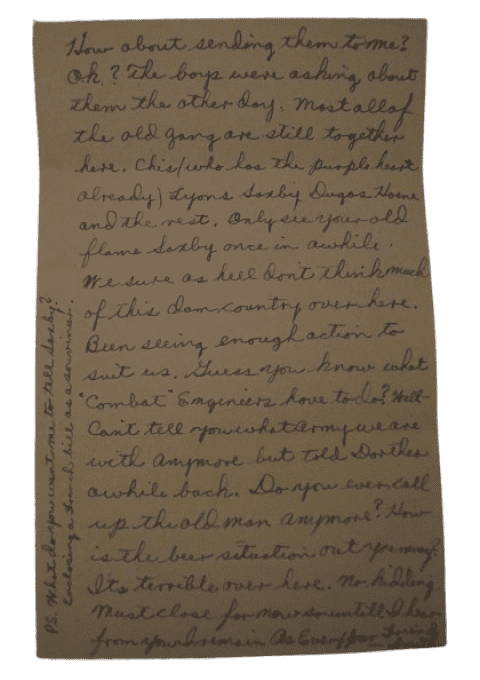 How about sending them to me?
Ok.? The boys were asking about
them the other day. Most all of
the old gang are still together
here. Chis/who has the purple heart
already) Lyons Saxby Dugas Hoene
and the rest. Only see your old
flame Saxby once in awhile.
We sure as hell don't think much
of this dam country over here.
Been seeing enough action to
suit us. Guess you know what
"Combat" Engineers have to do? Well-
Can't tell you what army we are
with anymore but told Dorthea
awhile back. Do you ever call
up the old man anymore? How
is the beer situation out your way?
Its terrible over here. No kidding.
Must close for now so untill I hear
from you I remain As Ever, Your Friend
PS. What do you want me to tell Saxby?
Enclosing a French bill as a souviner.